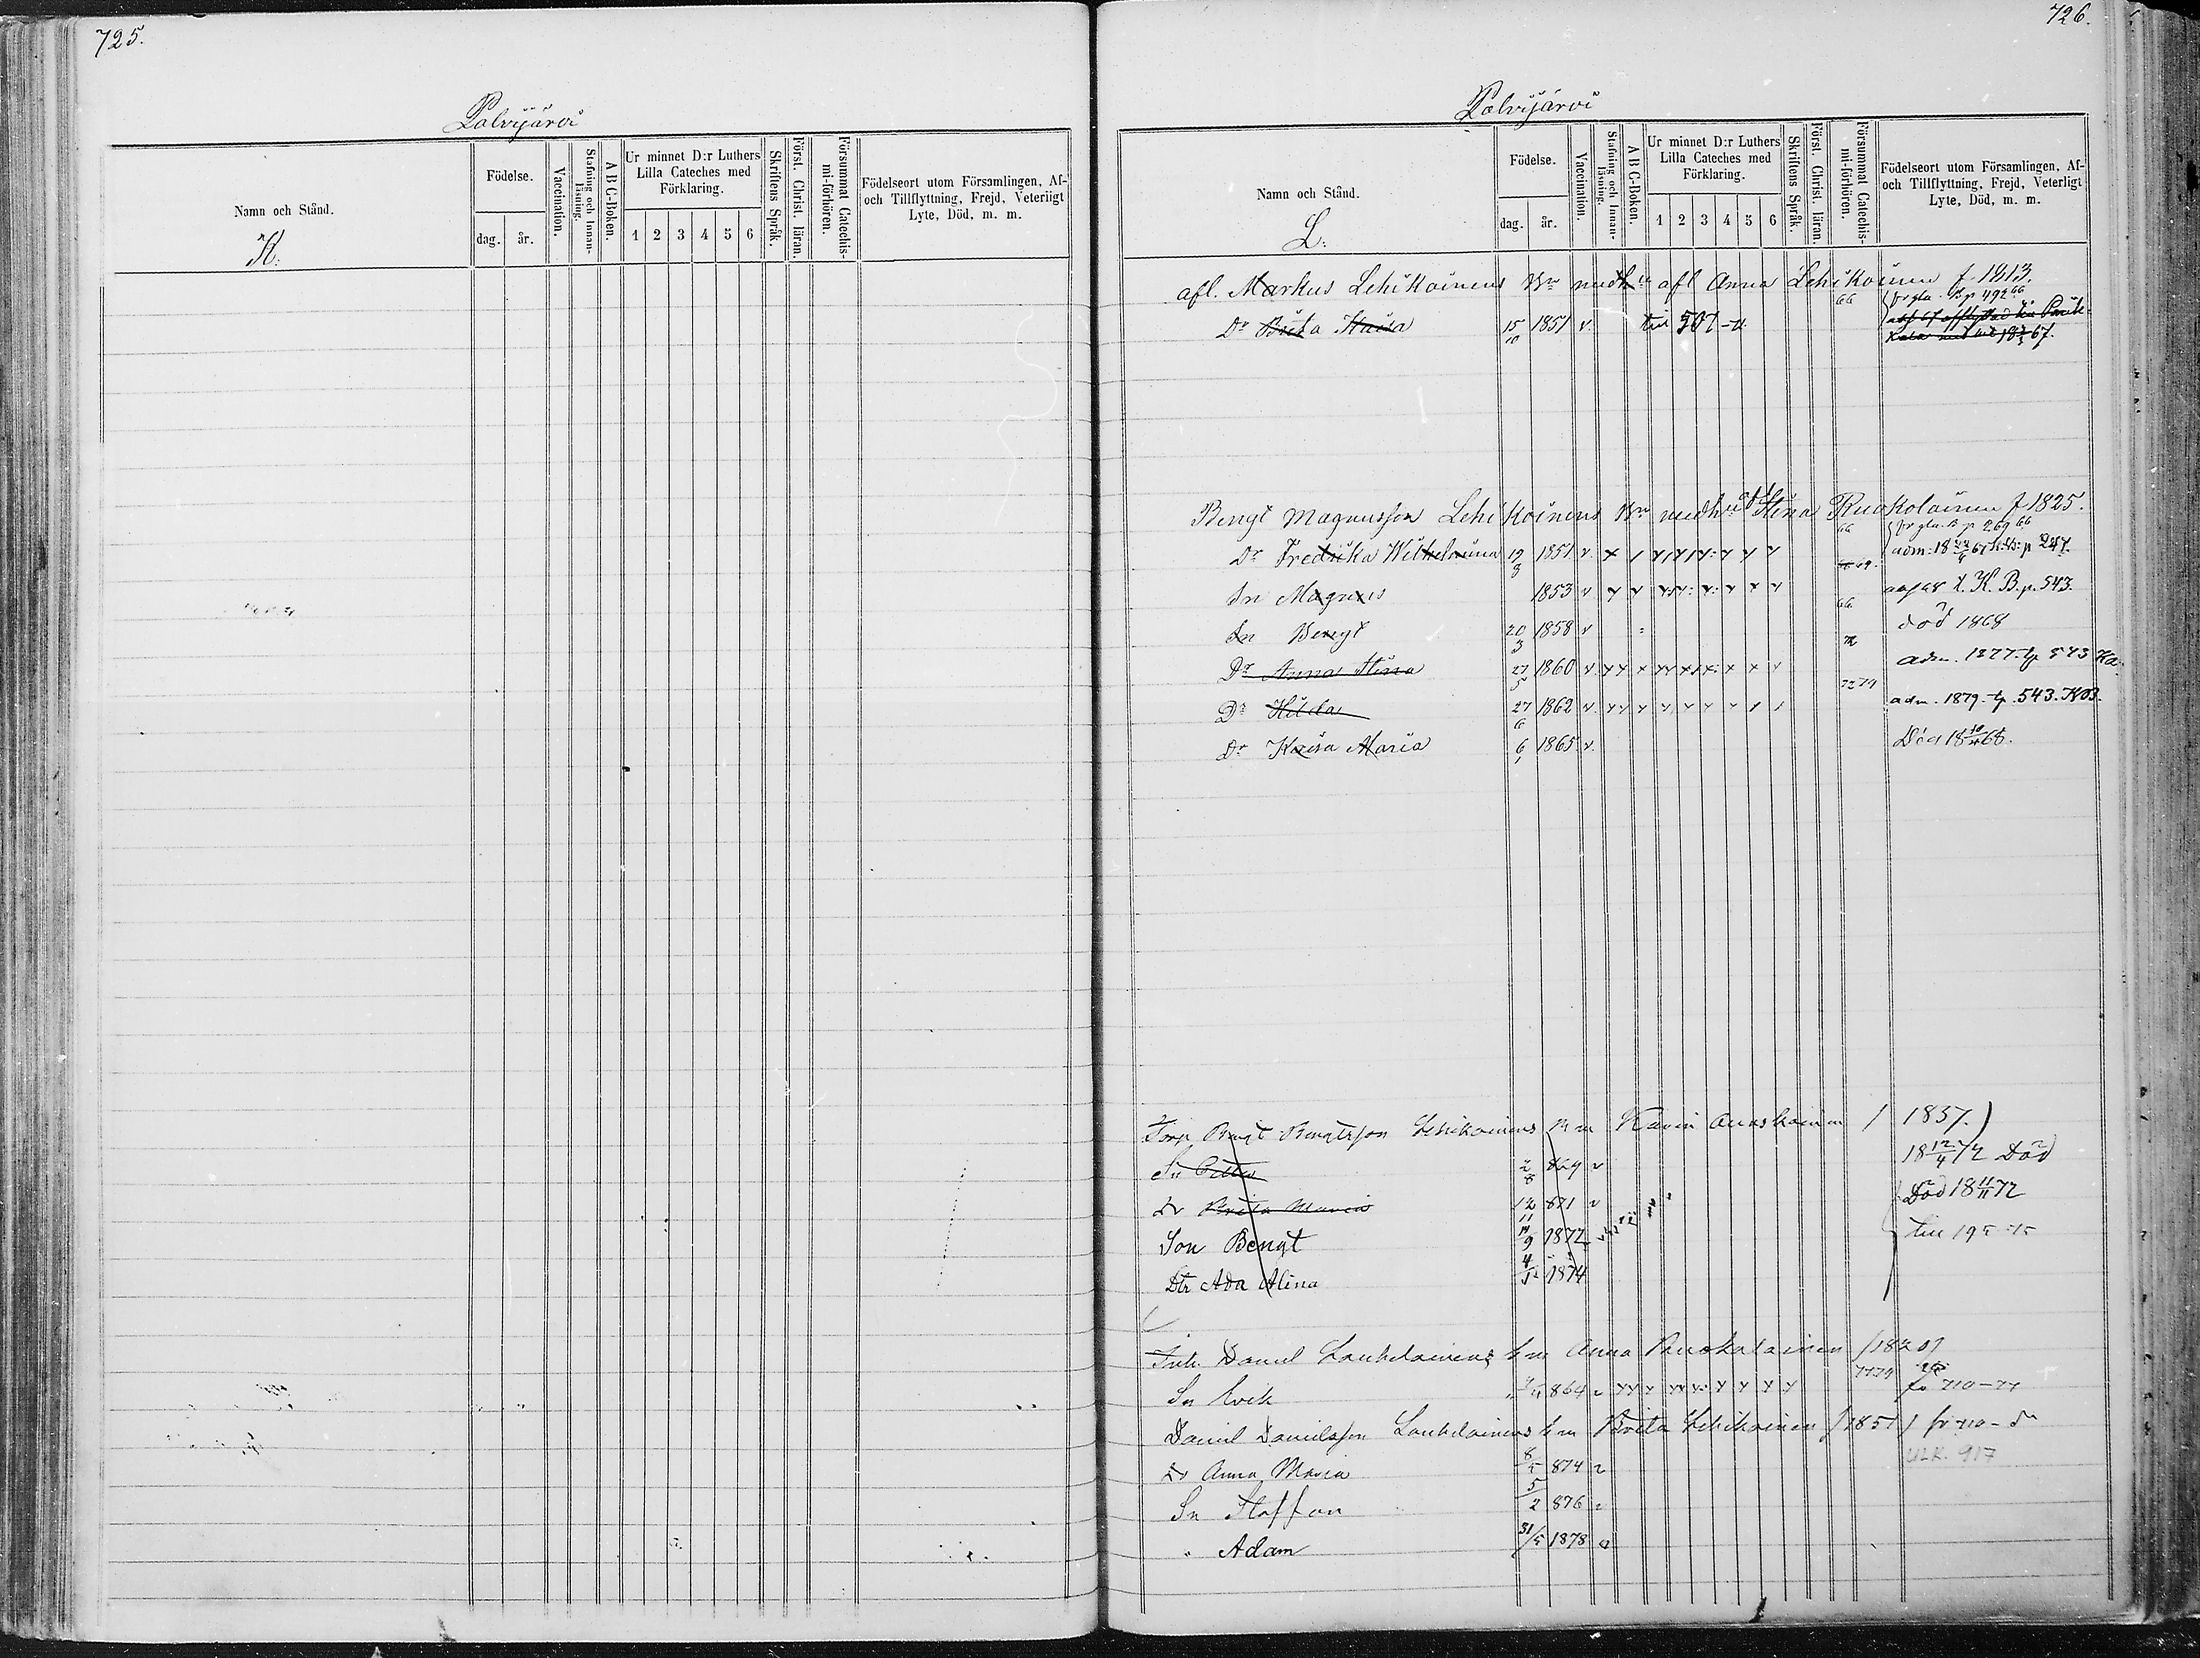 725.
Polvijärvi
Namn och Stånd.
K:
Födelse.
dag. år.
Vaccination.
Stafning och Innan-läsning.
A B C-Boken.
Ur minnet D:r Luthers Lilla Cateches med Förklaring.
1 2 3 4 5 6
Skriftens Språk.
Först. Christ. läran.
Försummat Catechis-mi-förhören.
Födelseort utom Församlingen, Af- och Tillflyttning, Frejd, Veterligt Lyte, Död, m. m.
726.
Polvijärvi
Namn och Stånd.
L:
Födelse.
dag. år.
Vaccination.
Stafning och Innan-läsning.
A B C-Boken.
Ur minnet D:r Luthers Lilla Cateches med Förklaring.
1 2 3 4 5 6
Skriftens Språk.
Först. Christ. läran.
Försummat Catechis-mi-förhören.
Födelseort utom Församlingen, Af- och Tillflyttning, Frejd, Veterligt Lyte, Död, m. m.
afl. Markus Lehikoinens Bn medh afl Anna Lehikoinen f. 1813.
66 p 492 66
Dr Brita Kaisa 15/10 1851 v. till 501
Bengt Magnusson Lehikoinens Bn medhu afl Stina Ruokolainen f 1825.
66 p 269 66
Dr Fredrika Wilhelmina 19/3 1851 v. adm: p 247.
Sn Magnus 1853 v K. B. p. 543.
66
Sn Bengt 20/3 1858 v död 1868
Dr Anna Stina 27/5 1860 v. adm. 1877 543
72 79
Dr Hilda 27/6 1862 v. adm. 1879 543. KB.
Dr Kaisa Maria 6/1 1865 v. Död 68.
Torp Bengt Bengtsson Lehikoinens h m Karin f 1837.)
Sn Petter 2/8 869 v 18 12/4 72 Död
Dr Brita Maria 12/11 871 v Död 18 11/11 72
Son Bengt 9 1872 till 195 75
Dtr Ada Alina 4 1874
Inh. Daniel Laukkainens h m Anna Ruokolainen f 182
Sn Erik 864 v 7779 710-77
Daniel Danielsson h m Brita Lehikoinen f 1851 fr 710
Dr Anna Maria 8/5 874 v ULK. 917
Sn Staffan 5/2 876 v
" Adam 31/5 1878 v